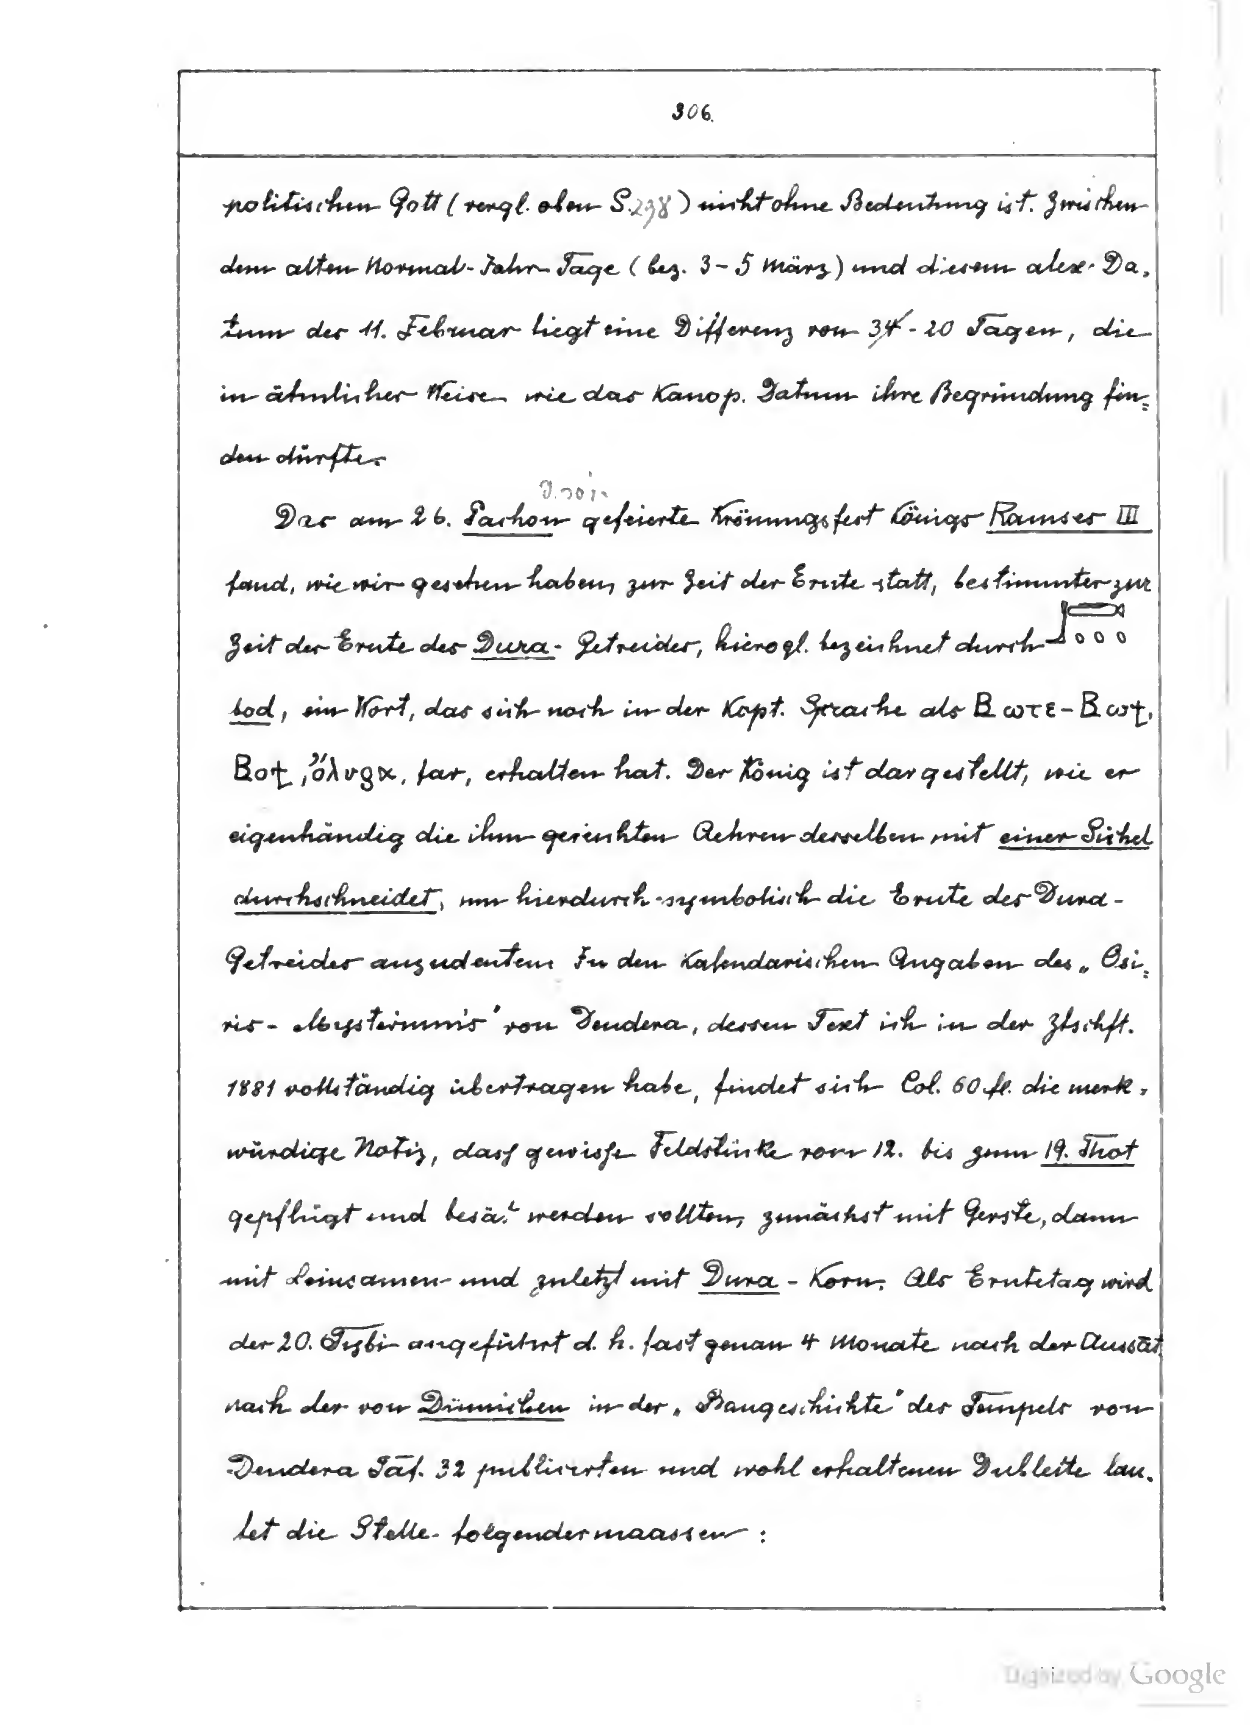 306.
politischen Gott (vergl. oben S. 238) nicht ohne Bedeutung ist. Zwischen
dem alten Normal-Jahr-Tage (bez. 3-5 März) und diesem alex. Da,
tum des 11. Februar liegt eine Differenz von 34 - 20 Tagen, die
in ähnlicher Weise wie das Kanop. Datum ihre Begründung fin=
den dürfte.
Das am 26. Pachon gefeierte Krönungsfest Königs Ramses III
fand, wie wir gesehen haben, zur Zeit der Ernte statt, bestimmter zur
Zeit der Ernte des Dura-Getreides, hierogl. bezeichnet durch
bod, ein Wort, das sich noch in der Kopt. Sprache als Ⲃⲱⲧⲉ-Ⲃⲱϯ,
Ⲃⲟϯ, ὄλυρα, far, erhalten hat. Der König ist dargestellt, wie er
eigenhändig die ihm gereichten Aehren desselben mit einer Sichel
durchschneidet, um hierdurch symbolisch die Ernte des Dura-
Getreides anzudeuten. In den Kalendarischen Angaben des „Osi=
ris-Mysteriums" von Dendera, dessen Text ich in der Ztschft.
1881 vollständig übertragen habe, findet sich Col. 60 fl. die merk,
würdige Notiz, dass gewisse Feldstücke vom 12. bis zum 19. Thot
gepflügt und besät werden sollten, zunächst mit Gerste, dann
mit Leinsamen und zuletzt mit Dura-Korn. Als Erntetag wird
der 20. Tybi angeführt d. h. fast genau 4 Monate nach der Aussat
nach der von Dümichen in der „Baugeschichte" des Tempels von
Dendera Taf. 32 publicirten und wohl erhaltenen Dublette lau,
tet die Stelle folgendermaassen:
Digitized by Google